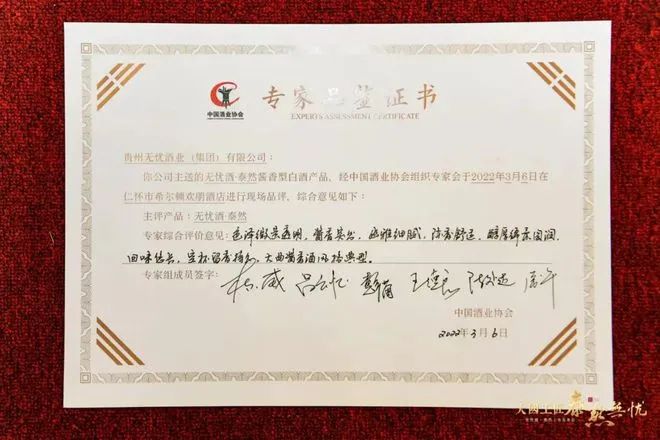 中国酒业协会
专家品鉴证书
EXPERTS ASSESSMENT CERTIFICATE
贵州无忧酒业（集团）有限公司：
你公司主送的无忧酒·泰然酱香型白酒产品，经中国酒业协会组织专家会于2022年3月6日在
仁怀市希尔顿欢朋酒店进行现场品评，综合意见如下：
主评产品：无忧酒·泰然
专家综合评价意见：色泽微黄透明，酱香突出，幽雅细腻，陈香舒适，醇厚绵柔圆润，
回味悠长，空杯留香持久，大曲酱香酒风格典型。
专家组成员签字：
中国酒业协会
2022年3月6日
大国工匠 泰然无忧